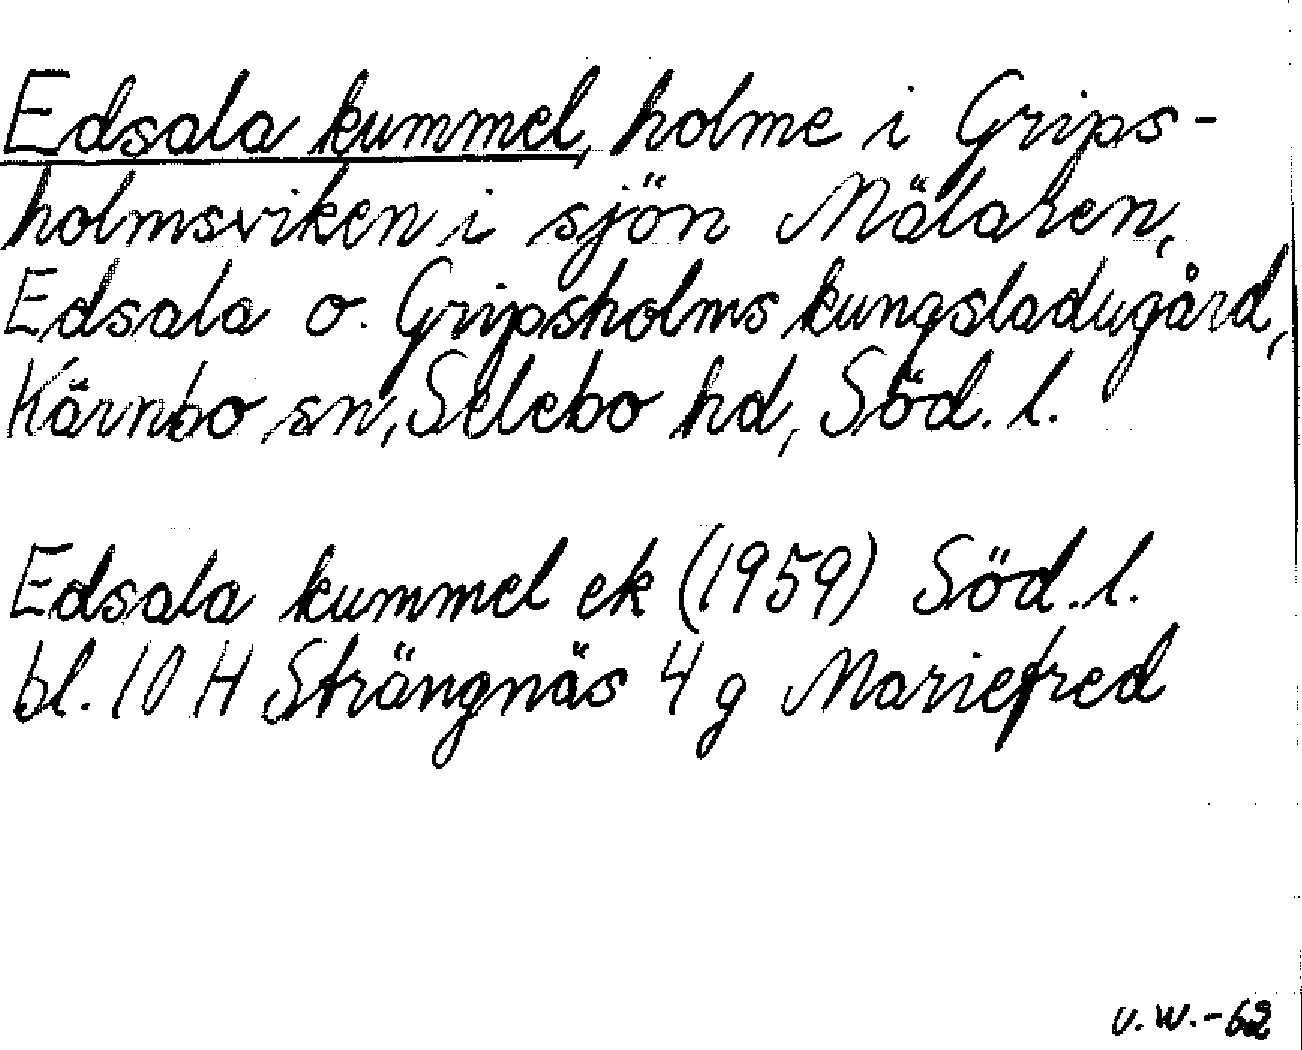 Edsala kummel, holme i Grips-
holmsviken i sjön Mälaren,
Edsala o. Gripsholms kungsladugård,
Kärnbo sn, Selebo hd, Söd. l.
Edsala kummel ek (1959) Söd. l.
bl. 10 H Strängnäs 4 g Mariefred
v.w.-62